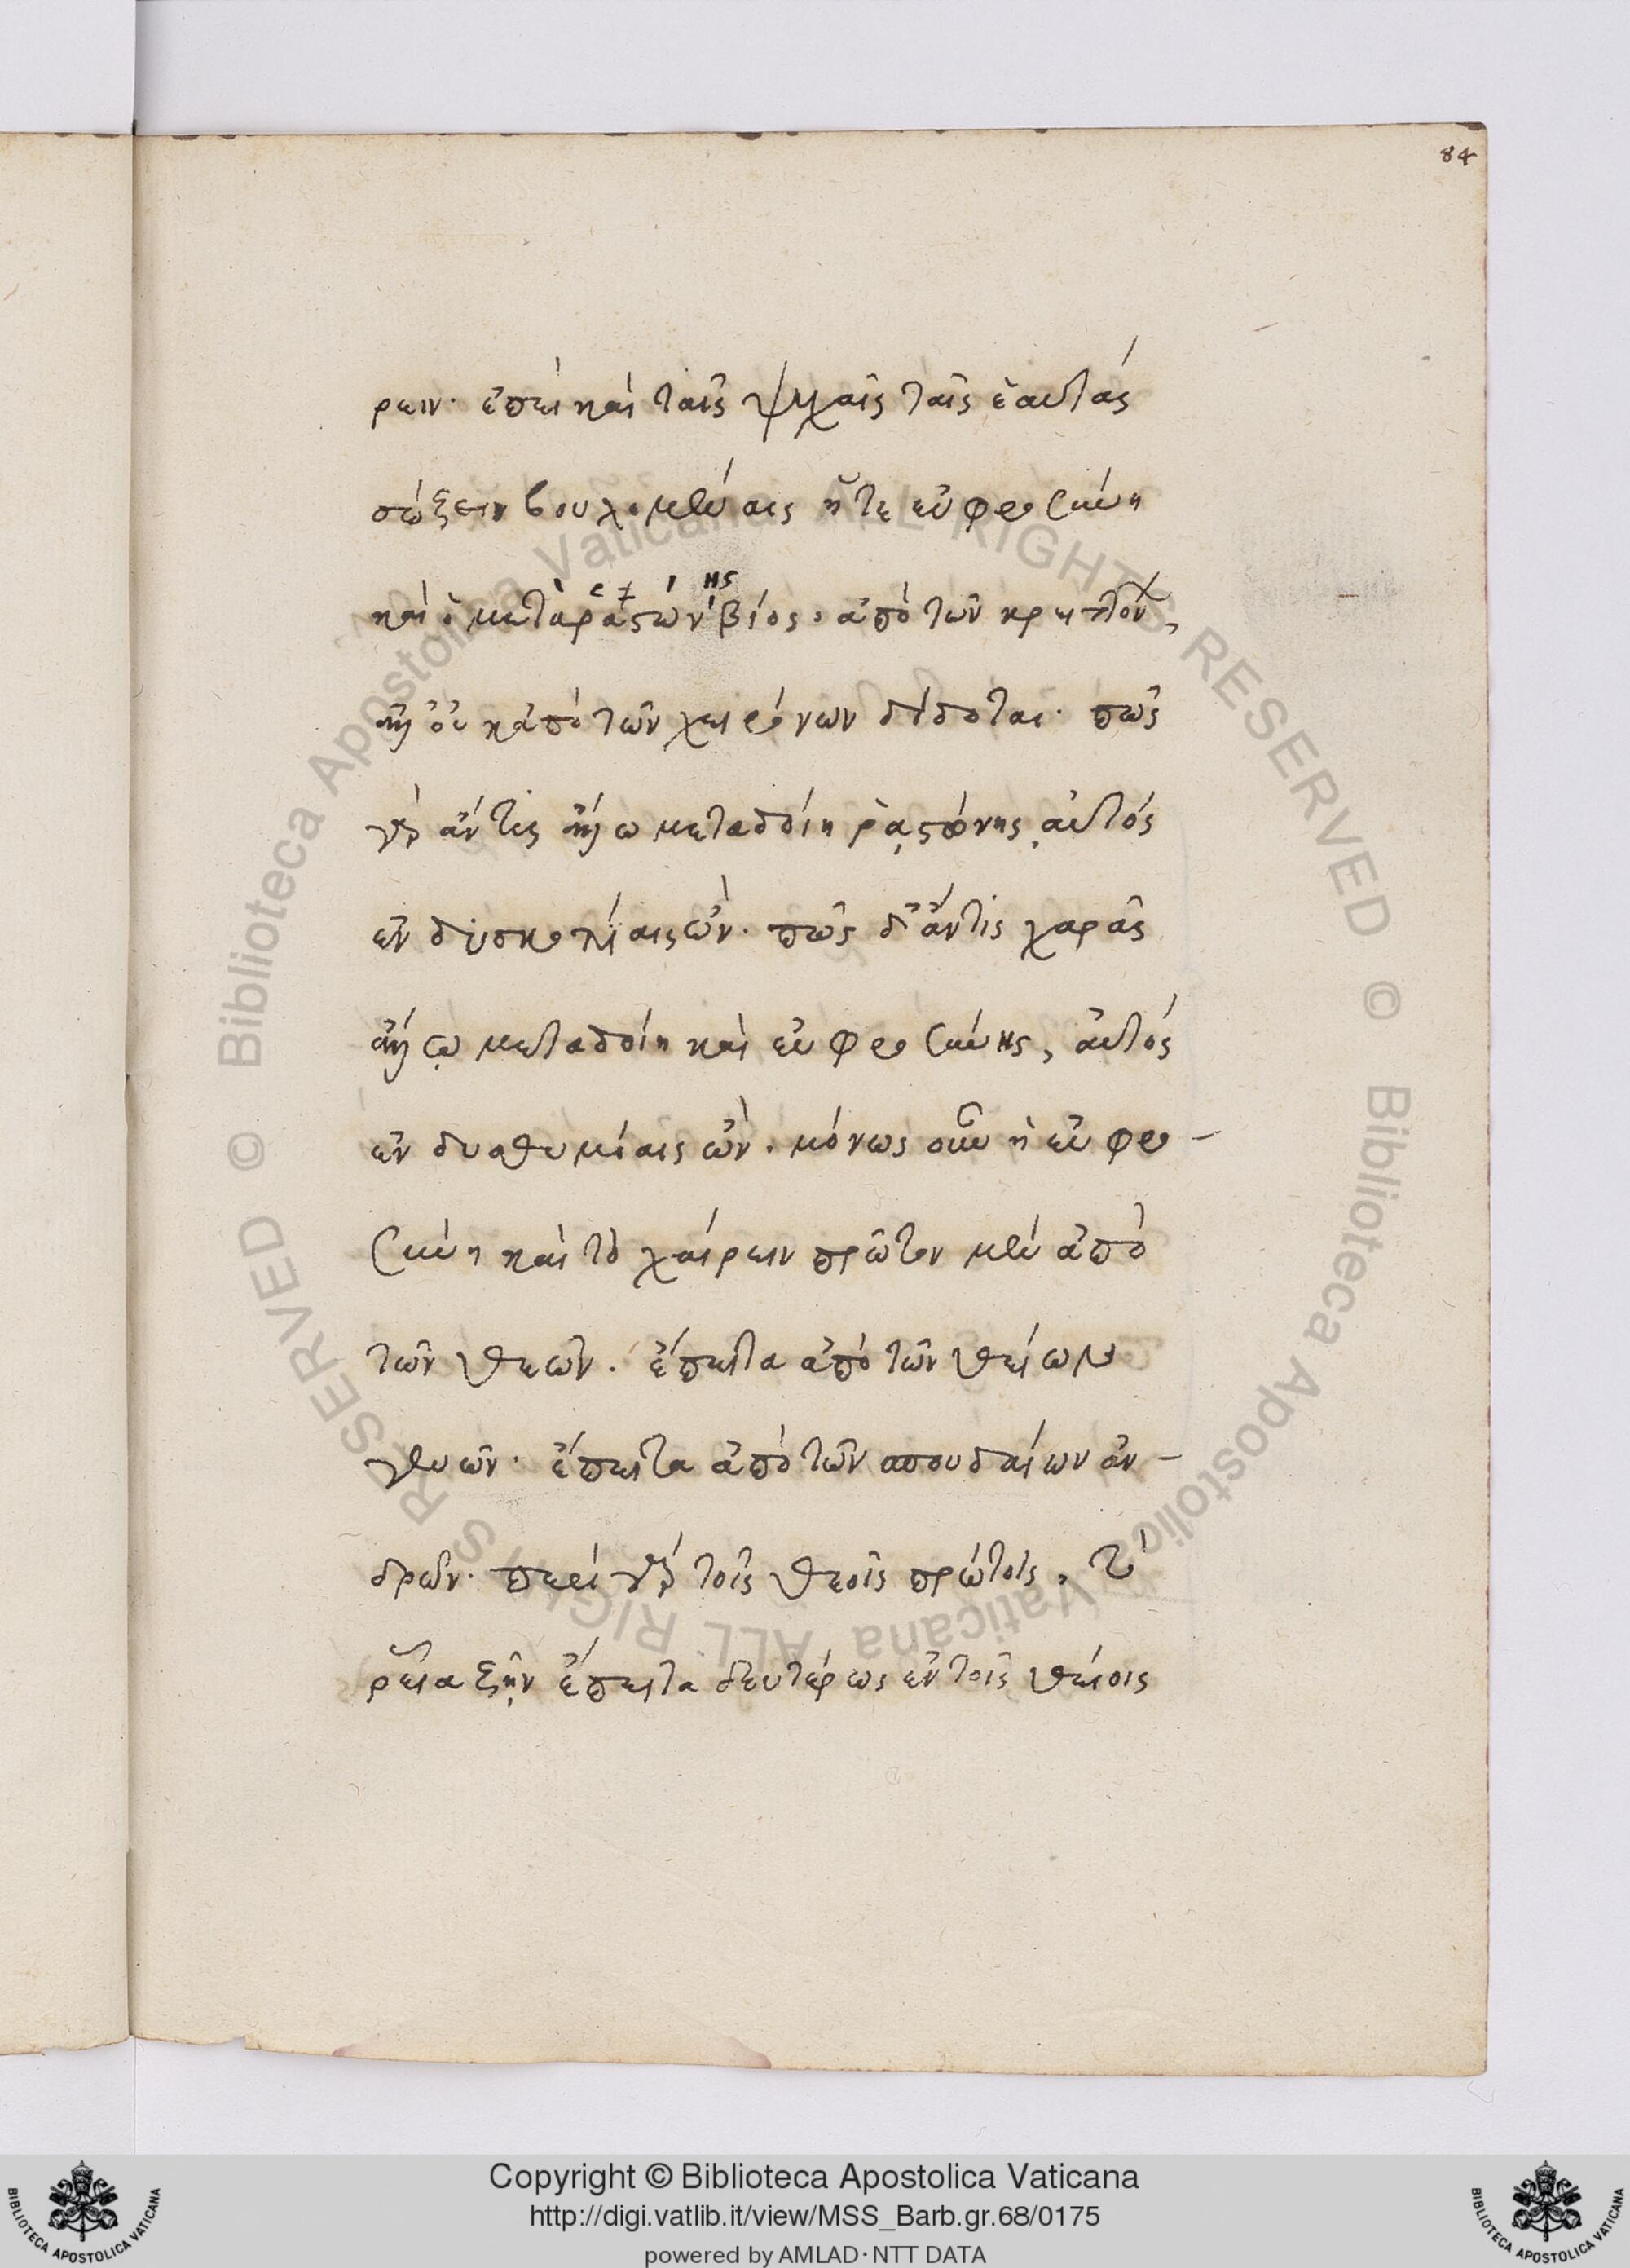 84
ρειν. ἐπεὶ καὶ ταῖς ψυχαῖς ταῖς ἑαυτὰς
σώζειν βουλομέναις ἥτε εὐφροσύνη
καὶ ὁ μετὰ ῥαστώνης βίος, ἀπὸ τῶν κρειττόνων,
ἀλλ' οὐκ ἀπὸ τῶν χειρόνων δίδοται. πῶς
γὰρ ἄν τις ἄλλῳ μεταδοίη ῥᾳστώνης, αὐτὸς
ἐν δυσκολίαις ὤν. πῶς δ' ἄν τις χαρᾶς
ἄλλῳ μεταδοίη καὶ εὐφροσύνης, αὐτὸς
ἐν δυσθυμίαις ὤν. μόνως οὖν ἡ εὐφρο-
σύνη καὶ τὸ χαίρειν πρῶτον μὲν ἀπὸ
τῶν θεῶν. ἔπειτα ἀπὸ τῶν θείων
γενῶν. ἔπειτα ἀπὸ τῶν σπουδαίων ἀν-
δρῶν. περὶ γὰρ τοῖς θεοῖς πρώτοις, τὸ
ῥεῖα ζῆν ἔπειτα δευτέρως ἐν τοῖς θείοις
Copyright © Biblioteca Apostolica Vaticana
http://digi.vatlib.it/view/MSS_Barb.gr.68/0175
powered by AMLAD·NTT DATA
BIBLIOTECA APOSTOLICA VATICANA
BIBLIOTECA APOSTOLICA VATICANA
© Biblioteca Apostolica Vaticana ALL RIGHTS RESERVED
© Biblioteca Apostolica Vaticana ALL RIGHTS RESERVED